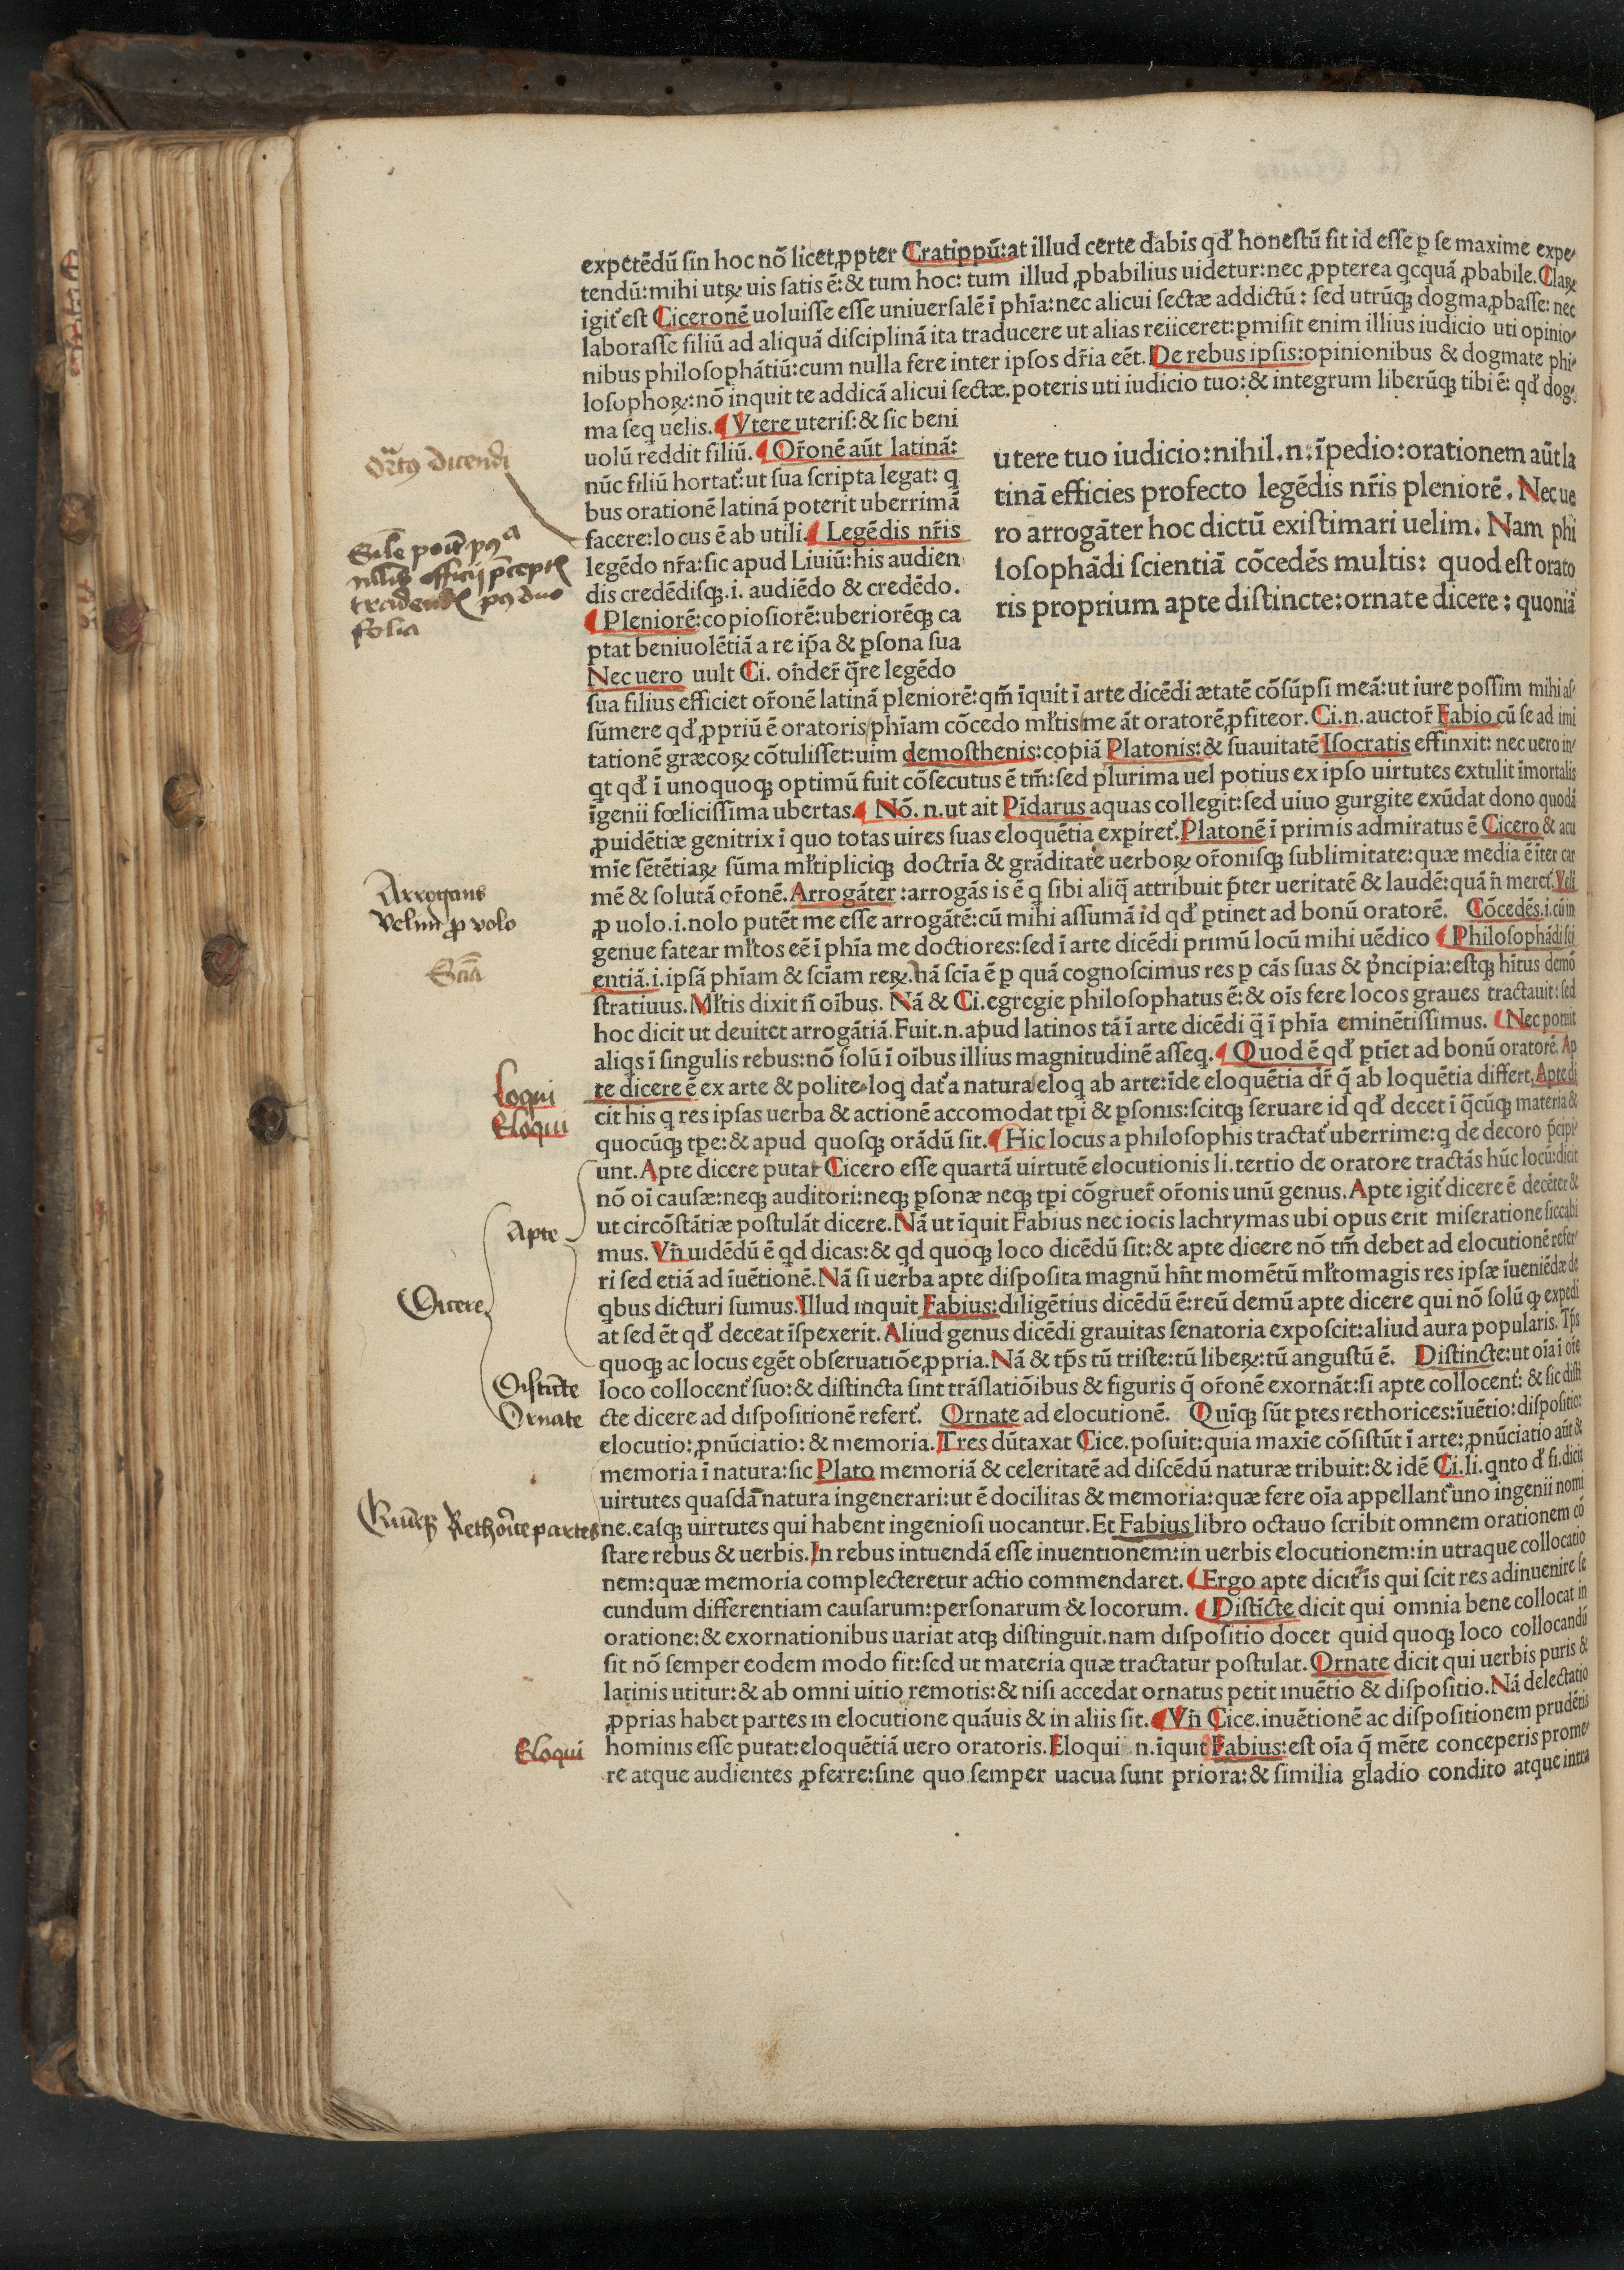 expetēdū sin hoc nō licet ꝓpter Cratippū: at illud certe dabis qđ honestū sit id esse ꝑ se maxime expe⸗
tendū: mihi utꝝ uis satis ē: & tum hoc: tum illud ꝓbabilius uidetur: nec ꝓpterea qcquā ꝓbabile. Claꝝ
igit̄ est Ciceronē uoluisse esse uniuersalē ī phīa: nec alicui sectæ addictū: sed utrūqꝫ dogma ꝓbasse: nec
laborasse filiū ad aliquā disciplinā ita traducere ut alias reiiceret: ꝑmisit enim illius iudicio uti opinio⸗
nibus philosophātiū: cum nulla fere inter ipsos dr̄ia eēt. De rebus ipsis: opinionibus & dogmate phi⸗
losophoꝝ: nō inquit te addicā alicui sectæ. poteris uti iudicio tuo: & integrum liberūqꝫ tibi ē: qđ dog⸗
ma seq uelis. ¶ Vtere uteris: & sic beni
uolū reddit filiū. ¶ Or̄onē aūt latinā:
nūc filiū hortat̄: ut sua scripta legat: q
bus orationē latinā poterit uberrimā
facere: locus ē ab utili. ¶ Legēdis nr̄is
legēdo nr̄a: sic apud Liuiū: his audien
dis credēdisqꝫ .i. audiēdo & credēdo.
¶ Pleniorē: copiosiorē: uberiorēqꝫ ca
ptat beniuolētiā a re ip̄a & ꝑsona sua
Nec uero uult Ci. on̄der̄ q̄re legēdo
utere tuo iudicio: nihil .n. īpedio: orationem aūt la
tinā efficies profecto legēdis nr̄is pleniorē. Nec ue
ro arrogāter hoc dictū existimari uelim. Nam phi
losophādi scientiā cōcedēs multis: quod est orato
ris proprium apte distincte: ornate dicere: quoniā
sua filius efficiet or̄onē latinā pleniorē: qm̄ īquit ī arte dicēdi ætatē cōsūpsi meā: ut iure possim mihi as⸗
sūmere qđ ꝓpriū ē oratoris/ phīam cōcedo mł̄tis/ me āt oratorē ꝓfiteor. Ci .n. auctor̄ Fabio cū se ad imi
tationē græcoꝝ cōtulisset: uim demosthenis: copiā Platonis: & suauitatē Isocratis effinxit: nec uero in⸗
qt qđ ī unoquoqꝫ optimū fuit cōsecutus ē tm̄: sed plurima uel potius ex ipso uirtutes extulit īmortalis
īgenii fœlicissima ubertas. ¶ Nō .n. ut ait Pīdarus aquas collegit: sed uiuo gurgite exūdat dono quodā
ꝓuidētiæ genitrix ī quo totas uires suas eloquētia expiret̄. Platonē ī primis admiratus ē Cicero & acu
mīe sētētiaꝝ sūma mł̄tipliciqꝫ doctrīa & grāditate uerboꝝ or̄onisqꝫ sublimitate: quæ media ē īter car
mē & solutā or̄onē. Arrogāter: arrogās is ē q sibi aliq̄ attribuit p̄ter ueritatē & laudē: quā n̄ meret̄. Veli
ꝓ uolo .i. nolo putēt me esse arrogātē: cū mihi assumā id qđ ꝑtinet ad bonū oratorē. Cōcedēs .i. cū in
genue fatear mł̄tos eē ī phīa me doctiores: sed ī arte dicēdi primū locū mihi uēdico ¶ Philosophādi sci
entiā .i. ipsā phīam & scīam reꝝ. nā scīa ē ꝑ quā cognoscimus res ꝑ cās suas & p̄ncipia: estqꝫ hītus demō
stratiuus. Mł̄tis dixit n̄ oībus. Nā & Ci. egregie philosophatus ē: & oīs fere locos graues tractauit: sed
hoc dicit ut deuitet arrogātiā. Fuit .n. apud latinos tā ī arte dicēdi q̄ ī phīa eminētissimus. ¶ Nec potuit
aliqs ī singulis rebus: nō solū ī oībus illius magnitudinē asseq. ¶ Quod ē qđ ꝑtīet ad bonū oratorē. Ap
te dicere ē ex arte & polite. loq dat̄ a natura/ eloq ab arte: īde eloquētia dr̄ q̄ ab loquētia differt. Apte di
cit his q res ipsas uerba & actionē accomodat tpi & ꝑsonis: scitqꝫ seruare id qđ decet ī q̄cūqꝫ materia &
quocūqꝫ tpe: & apud quosqꝫ orādū sit. ¶ Hic locus a philosophis tractat̄ uberrime: q de decoro p̄cipi⸗
unt. Apte dicere putat Cicero esse quartā uirtutē elocutionis li. tertio de oratore tractās hūc locū: dicit
nō oī causæ: neqꝫ auditori: neqꝫ ꝑsonæ neqꝫ tpi cōgruer̄ or̄onis unū genus. Apte igit̄ dicere ē decēter &
ut circōstātiæ postulāt dicere. Nā ut īquit Fabius nec iocis lachrymas ubi opus erit miseratione siccabi
mus. Vn̄ uidēdū ē qd dicas: & qd quoqꝫ loco dicēdū sit: & apte dicere nō tm̄ debet ad elocutionē refer⸗
ri sed etiā ad īuētionē. Nā si uerba apte disposita magnū hn̄t momētū mł̄tomagis res ipsæ īueniēdæ de
qbus dicturi sumus. Illud inquit Fabius: diligētius dicēdū ē: reū demū apte dicere qui nō solū qꝫ expedi
at sed ēt qđ deceat īspexerit. Aliud genus dicēdi grauitas senatoria exposcit: aliud aura popularis. Tp̄s
quoqꝫ ac locus egēt obseruatiōe ꝓpria. Nā & tp̄s tū triste: tū libeꝝ: tū angustū ē. Distincte: ut oīa ī or̄e
loco collocent̄ suo: & distincta sint trāslatiōibus & figuris q̄ or̄onē exornāt: si apte collocent̄: & sic disti
cte dicere ad dispositionē refert̄. Ornate ad elocutionē. Quīqꝫ sūt ptes rethorices: īuētio: dispositio:
elocutio: ꝓnūciatio: & memoria. Tres dūtaxat Cice. posuit: quia maxīe cōsistūt ī arte: ꝓnūciatio aūt &
memoria ī natura: sic Plato memoriā & celeritatē ad discēdū naturæ tribuit: & idē Ci. li. qnto đ fi. dicit
uirtutes quasdā natura ingenerari: ut ē docilitas & memoria: quæ fere oīa appellant̄ uno ingenii nomi
ne. easqꝫ uirtutes qui habent ingeniosi uocantur. Et Fabius libro octauo scribit omnem orationem cō
stare rebus & uerbis. In rebus intuendā esse inuentionem: in uerbis elocutionem: in utraque collocatio
nem: quæ memoria complecteretur actio commendaret. ¶ Ergo apte dicit̄ īs qui scit res adinuenire se
cundum differentiam causarum: personarum & locorum. ¶ Distīcte dicit qui omnia bene collocat in
oratione: & exornationibus uariat atqꝫ distinguit. nam dispositio docet quid quoqꝫ loco collocandū
sit nō semper eodem modo fit: sed ut materia quæ tractatur postulat. Ornate dicit qui uerbis puris &
latinis utitur: & ab omni uitio remotis: & nisi accedat ornatus petit inuētio & dispositio. Nā delectatio
ꝓprias habet partes in elocutione quāuis & in aliis sit. ¶ Vn̄ Cice. inuētionē ac dispositionem prudētis
hominis esse putat: eloquētiā uero oratoris. Eloqui .n. īquit Fabius: est oīa q̄ mēte conceperis prome⸗
re atque audientes ꝓferre: sine quo semper uacua sunt priora: & similia gladio condito atque intra
dicendi
folia
Arrogans
Velim ꝓ volo
Scīa
Loqui
Eloqui
Apte
Dicere
Distīcte
Ornate
Rethorice partes
Eloqui